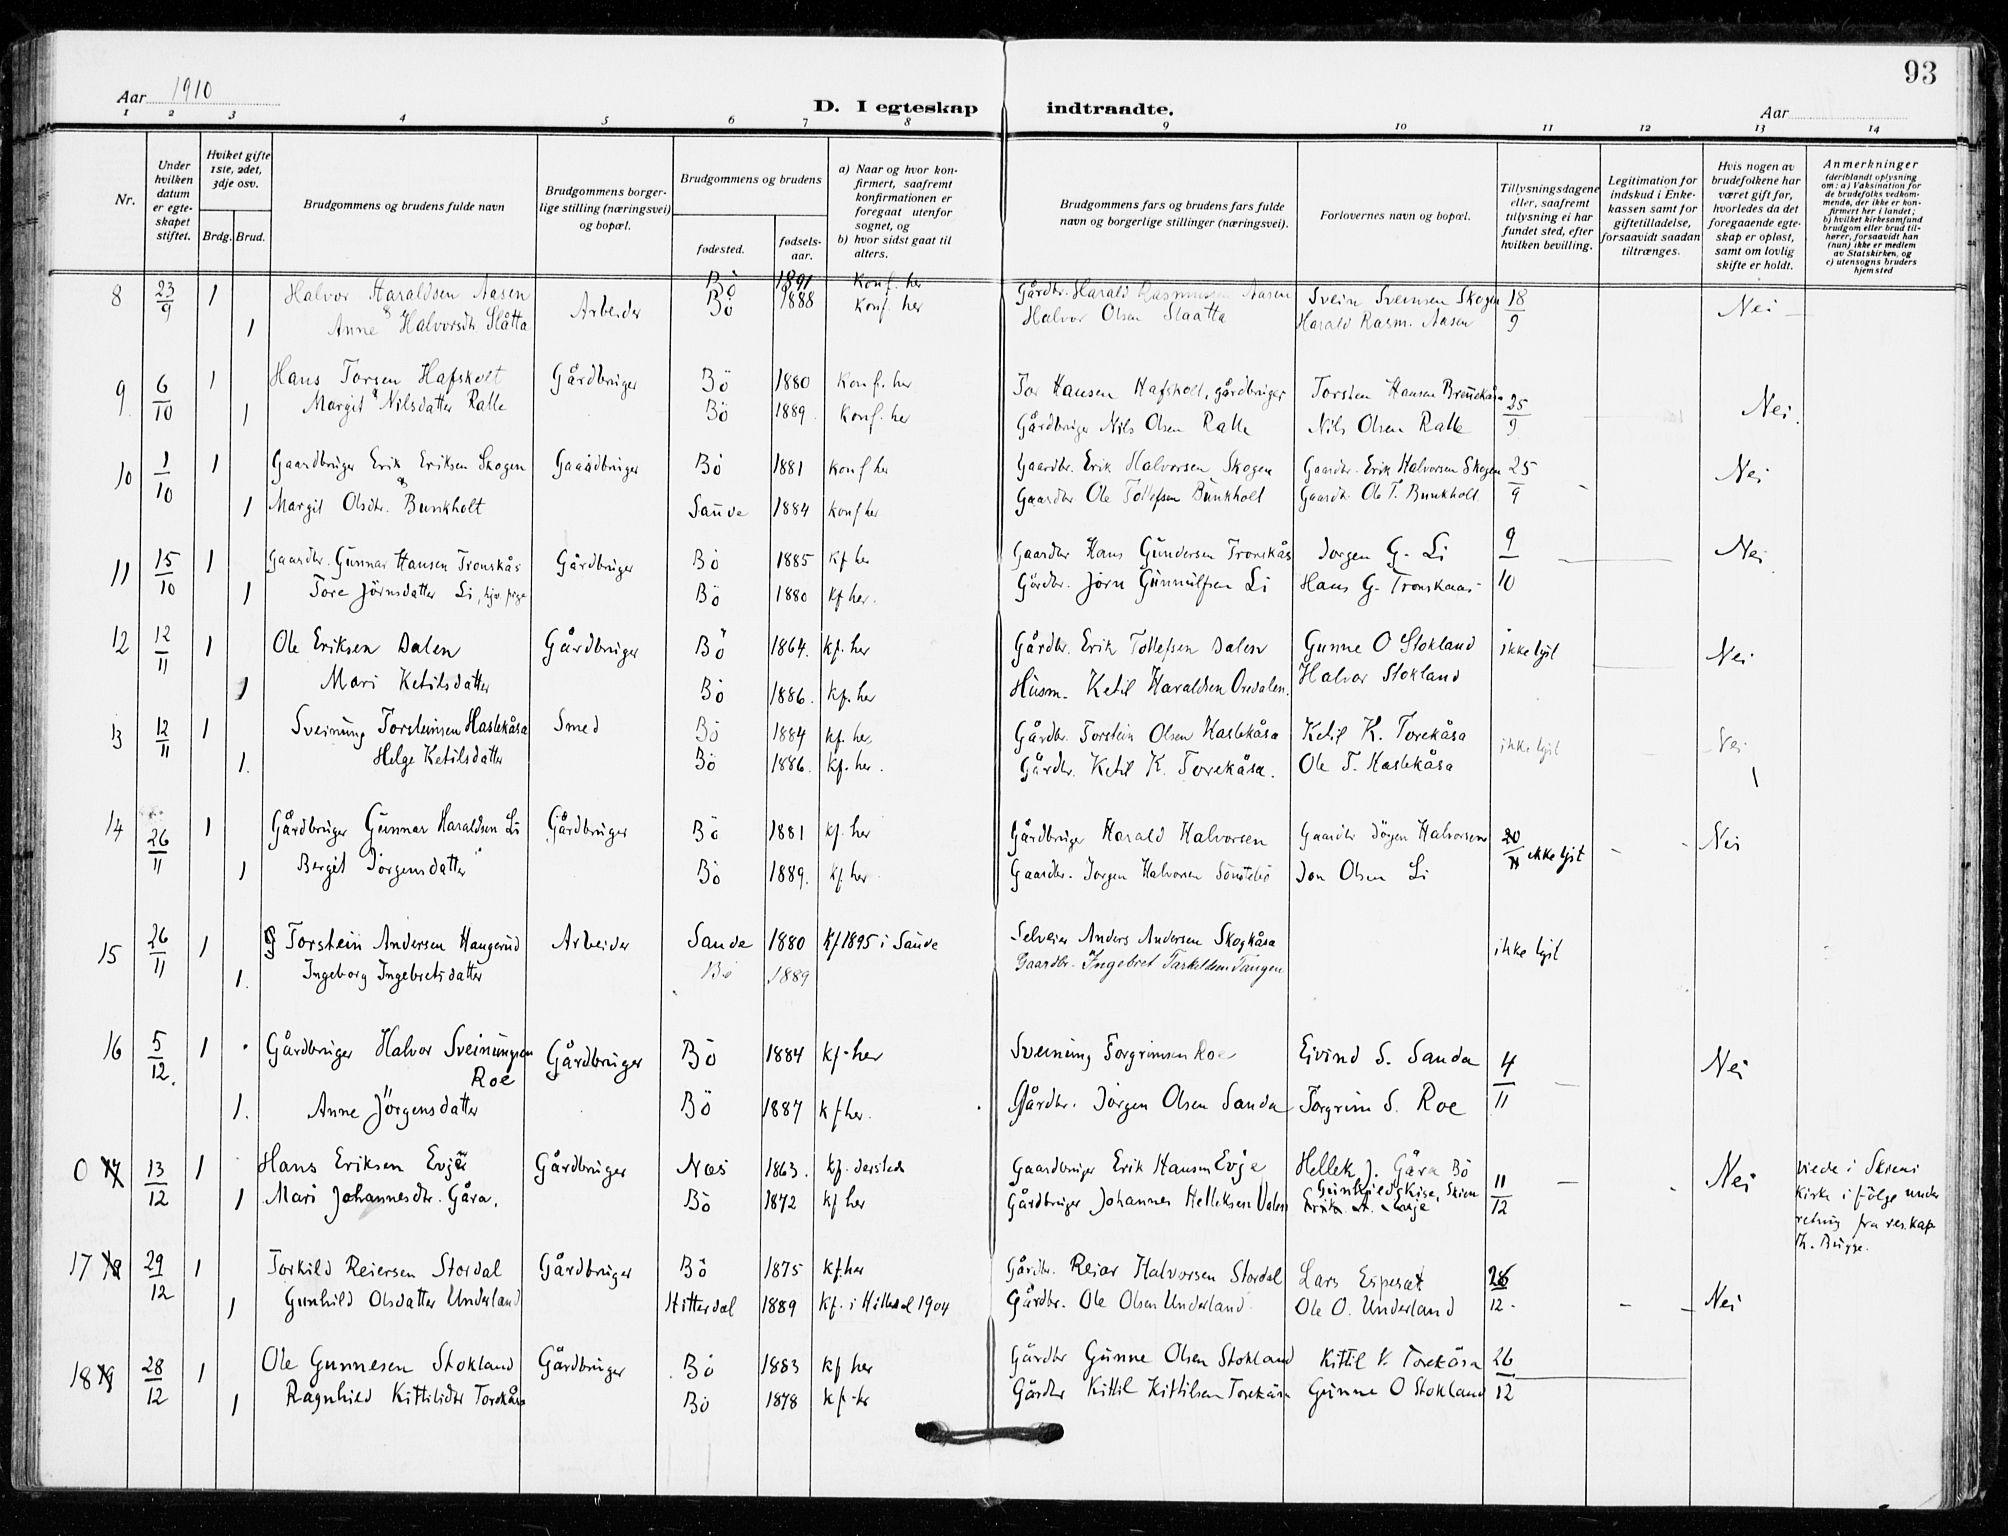 93
Aar 1910
D. I egteskap indtraadte.
Aar
1 2 3 4 5 6 7 8 9 10 11 12 13 14
Nr.
Under hvilken datum er egteskapet stiftet.
Hviket gifte 1ste, 2det, 3dje osv.
Brdg. Brud.
Brudgommens og brudens fulde navn
Brudgommens borgerlige stilling (næringsvei) og bopæl.
Brudgommens og brudens
fødested.
fødselsaar.
a) Naar og hvor konfirmert, saafremt konfirmationen er foregaat utenfor sognet, og
b) hvor sidst gaat til alters.
Brudgommens fars og brudens fars fulde navn og borgerlige stillinger (næringsvei).
Forlovernes navn og bopæl.
Tillysningsdagene eller, saafremt tillysning ei har fundet sted, efter hvilken bevilling.
Legitimation for indskud i Enkekassen samt for giftetilladelse, forsaavidt saadan tiltrænges.
Hvis nogen av brudefolkene har været gift før, hvorledes da det foregaaende egteskap er opløst, samt om lovlig skifte er holdt.
Anmerkninger (deriblandt oplysning om: a) Vaksination for de brudefolks vedkommende, der ikke er konfirmert her i landet; b) hvilket kirkesamfund brudgom eller brud tilhører, forsaavidt han (hun) ikke er medlem av Statskirken, og c) utensogns bruders hjemsted
8 23/9 1 Halvor Haraldsen Aasen Arbeider Bö 1891 Konf. her Gårdbr. Harald Rasmussen Aasen Svein Sveinsen Skogen 18/9 Nei
1 & Anne Halvorsdtr. Slåtta Bö 1888 Konf. her Halvor Olsen Slaatta Harald Rasm. Aasen
9 6/10 1 Hans Torsen Hafskolt Gårdbruger Bö 1880 Konf. her Tor Hansen Hafskolt, gårdbruger Torsten Hansen 25/9 Nei.
1 & Margit Nilsdatter Ralle Bö 1889. Konf. her Gårdbruger Nils Olsen Ralle Nils Olsen Ralle
10 1/10 1 Gaardbruger Erik Eriksen Skogen Bö 1881 Konf her Gaardbr. Erik Halvorsen Skogen Gaardbr. Erik Halvorsen Skogen 25/9 Nei
1 & Margit Olsdtr. Bunkholt Saude 1884 Konf her Gaardbr Ole Tollefsen Bunkholt Gaardb. Ole T. Bunkholt
11 15/10 1 Gaardbr. Gunnar Hansen Tronskås Gårdbruger Bö 1885 kf her Gaardbr Hans Gundersen Tronskås Jorgen G. Li 9/10 Nei
1 Tore Jörnsdatter Li, Bö 1880 kf her. Gårdbr. Jörn Gunnulfsen Li Hans G. Tronskaas
12 12/11 1 Ole Eriksen Dalen Gårdbruger Bö 1864. kf. her Gårdbr. Erik Tollefsen Dalen Gunne O Stokland ikke lyst Nei
1 Mari Ketilsdatter Bö 1886. kf. her Husm. Ketil Haraldsen Oredalen. Halvor Stokland
13 12/11 1 Sveinung Torsteinsen Haslekåsa Smed Bö 1884 kf. her Gårdbr. Torstein Olsen Haslekåsa Ketil K. Torekåsa ikke lyst Nei
1. Helge Ketilsdatter Bö 1886. kf. her. Gårdbr. Ketil K. Torekåsa. Ole T. Haslekåsa
14 26/11 1 Gårdbruger Gunnar Haraldsen Li Gårdbruger Bö 1881 kf. her Gårdbruger Harald Halvorsen Gaardbr Jögen Halvorsen 20/11 ikke lyst Nei
1 Bergit Jörgensdatter Bö 1889. kf. her Gaardbr. Jorgen Halvorsen Jon Olsen Li
15 26/11 1 Torstein Andersen Haugerud Arbeider Sande 1880 kf 1895 i Saude Selveier Anders Andersen Skogkåsa ikke lyst
1. Ingeborg Ingebretsdatter Bö 1889 Gaardbr. Ingebret Tarkeldsen Tangen
16 5/12. 1 Gårdbruger Halvor Sveinungsen Roe Gårdbruger Bö 1884 kf. her Sveinung Torgrimsen Roe Eivind S. Sanda 4/11 Nei
1. Anne Jörgensdatter Bö 1887 kf her. Gårdbr. Jörgen Olsen Sanda Torgrim S. Roe
0 17 13/12 1 Hans Eriksen Evje Gårdbruger Næs 1863. kf. dersteds Gaardbruger Erik Hansen Evje Hellek J. Gåra Bö 11/12 Nei viede i Skiens Kirke i fölge underretning fra res.kap. Th. Bugge.
1 Mari Johannesdtr. Gåra. Bö 1872 kf her Gårdbruger Johannes Helleksen Valen Skien
17 18 29/12 1 Torkild Reiersen Stordal Gårdbruger Bö 1875 kf. her Gårdbr. Reiar Halvorsen Stordal Lars Espeset 26/12. Nei
1 Gunhild Olsdatter Underland Hitterdal 1889 kf. i Hitterdal 1904 Gårdbr. Ole Olsen Underland Ole O. Underland
18 19 28/12 1 Ole Gunnesen Stokland Gårdbruger Bö 1883 kf her Gårdbr Gunne Olsen Stokland Kittil K. Torekåsa 26/12
1 Ragnhild Kittilsdtr Torekåsa Bö 1878 kf. her Gårdbr Kittil Kittilsen Torekåsa Gunne O Stokland